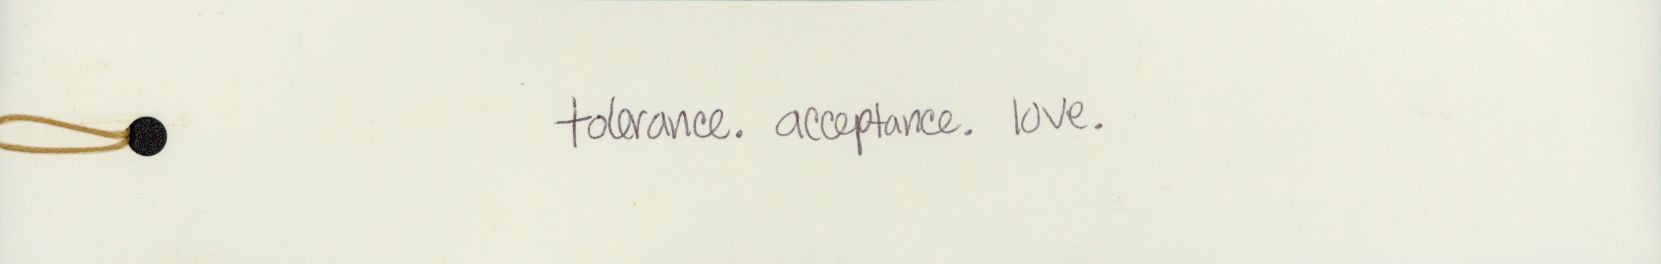 tolerance. acceptance. love.